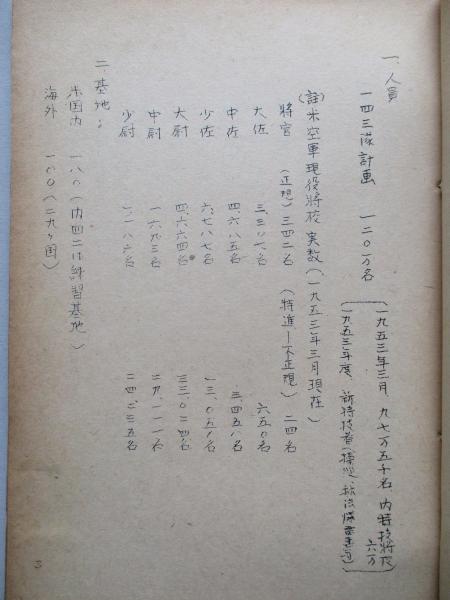 一、人員
一四三隊計画　一二〇万名
一九五三年三月、九七万五千名、内特技将校
六万
一九五三年度、新特技者
(註)米空軍現役将校実数(一九五三年三月現在)
將官　(正規)三四二名　(特進—不正規)　二四名
大佐　三、三〇六名　六五〇名
中佐　四、六八五名　三、四五八名
少佐　六、七八七名　一三、〇五八名
大尉　四、六六四名　三三、〇二四名
中尉　一、六九三名　二九、一一一名
少尉　一、一八六名　二四、二二五名
二、基地;
米国内　一八〇(内四二は練習基地)
海外　一〇〇(二九ヶ国)
3